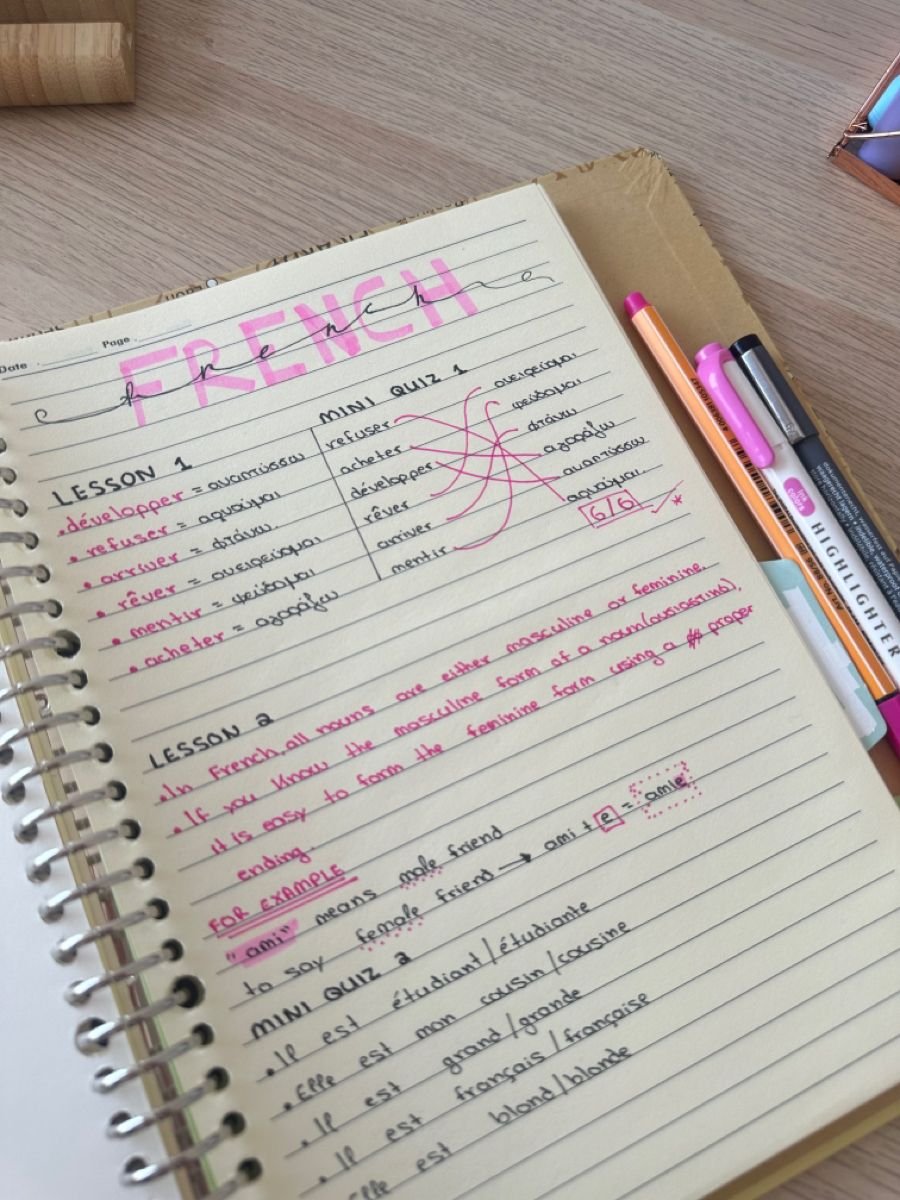 Date
Page
FRENCH
french
LESSON 1
.développer = αναπτύσσω
• refuser = αρνούμαι
• arriver = φτάνω
• rêver = ονειρεύομαι
• mentir = ψεύδομαι
• acheter = αγοράζω
MINI QUIZ 1
refuser ονειρεύομαι
acheter ψεύδομαι
développer φτάνω
rêver αγοράζω
arriver αναπτύσσω
mentir αρνούμαι
6/6
LESSON 2
.In French all nouns are either masculine or feminine.
• If you know the masculine form of a noun(ουσιαστικό),
it is easy to form the feminine form using a proper
ending.
FOR EXAMPLE
"ami" means male friend
to say female friend → ami + e = amie
MINI QUIZ 2
.Il est étudiant/étudiante
.Elle est mon cousin/cousine
.Il est grand/grande
.Il est français/française
Elle est blond/blonde
HIGHLIGHTER